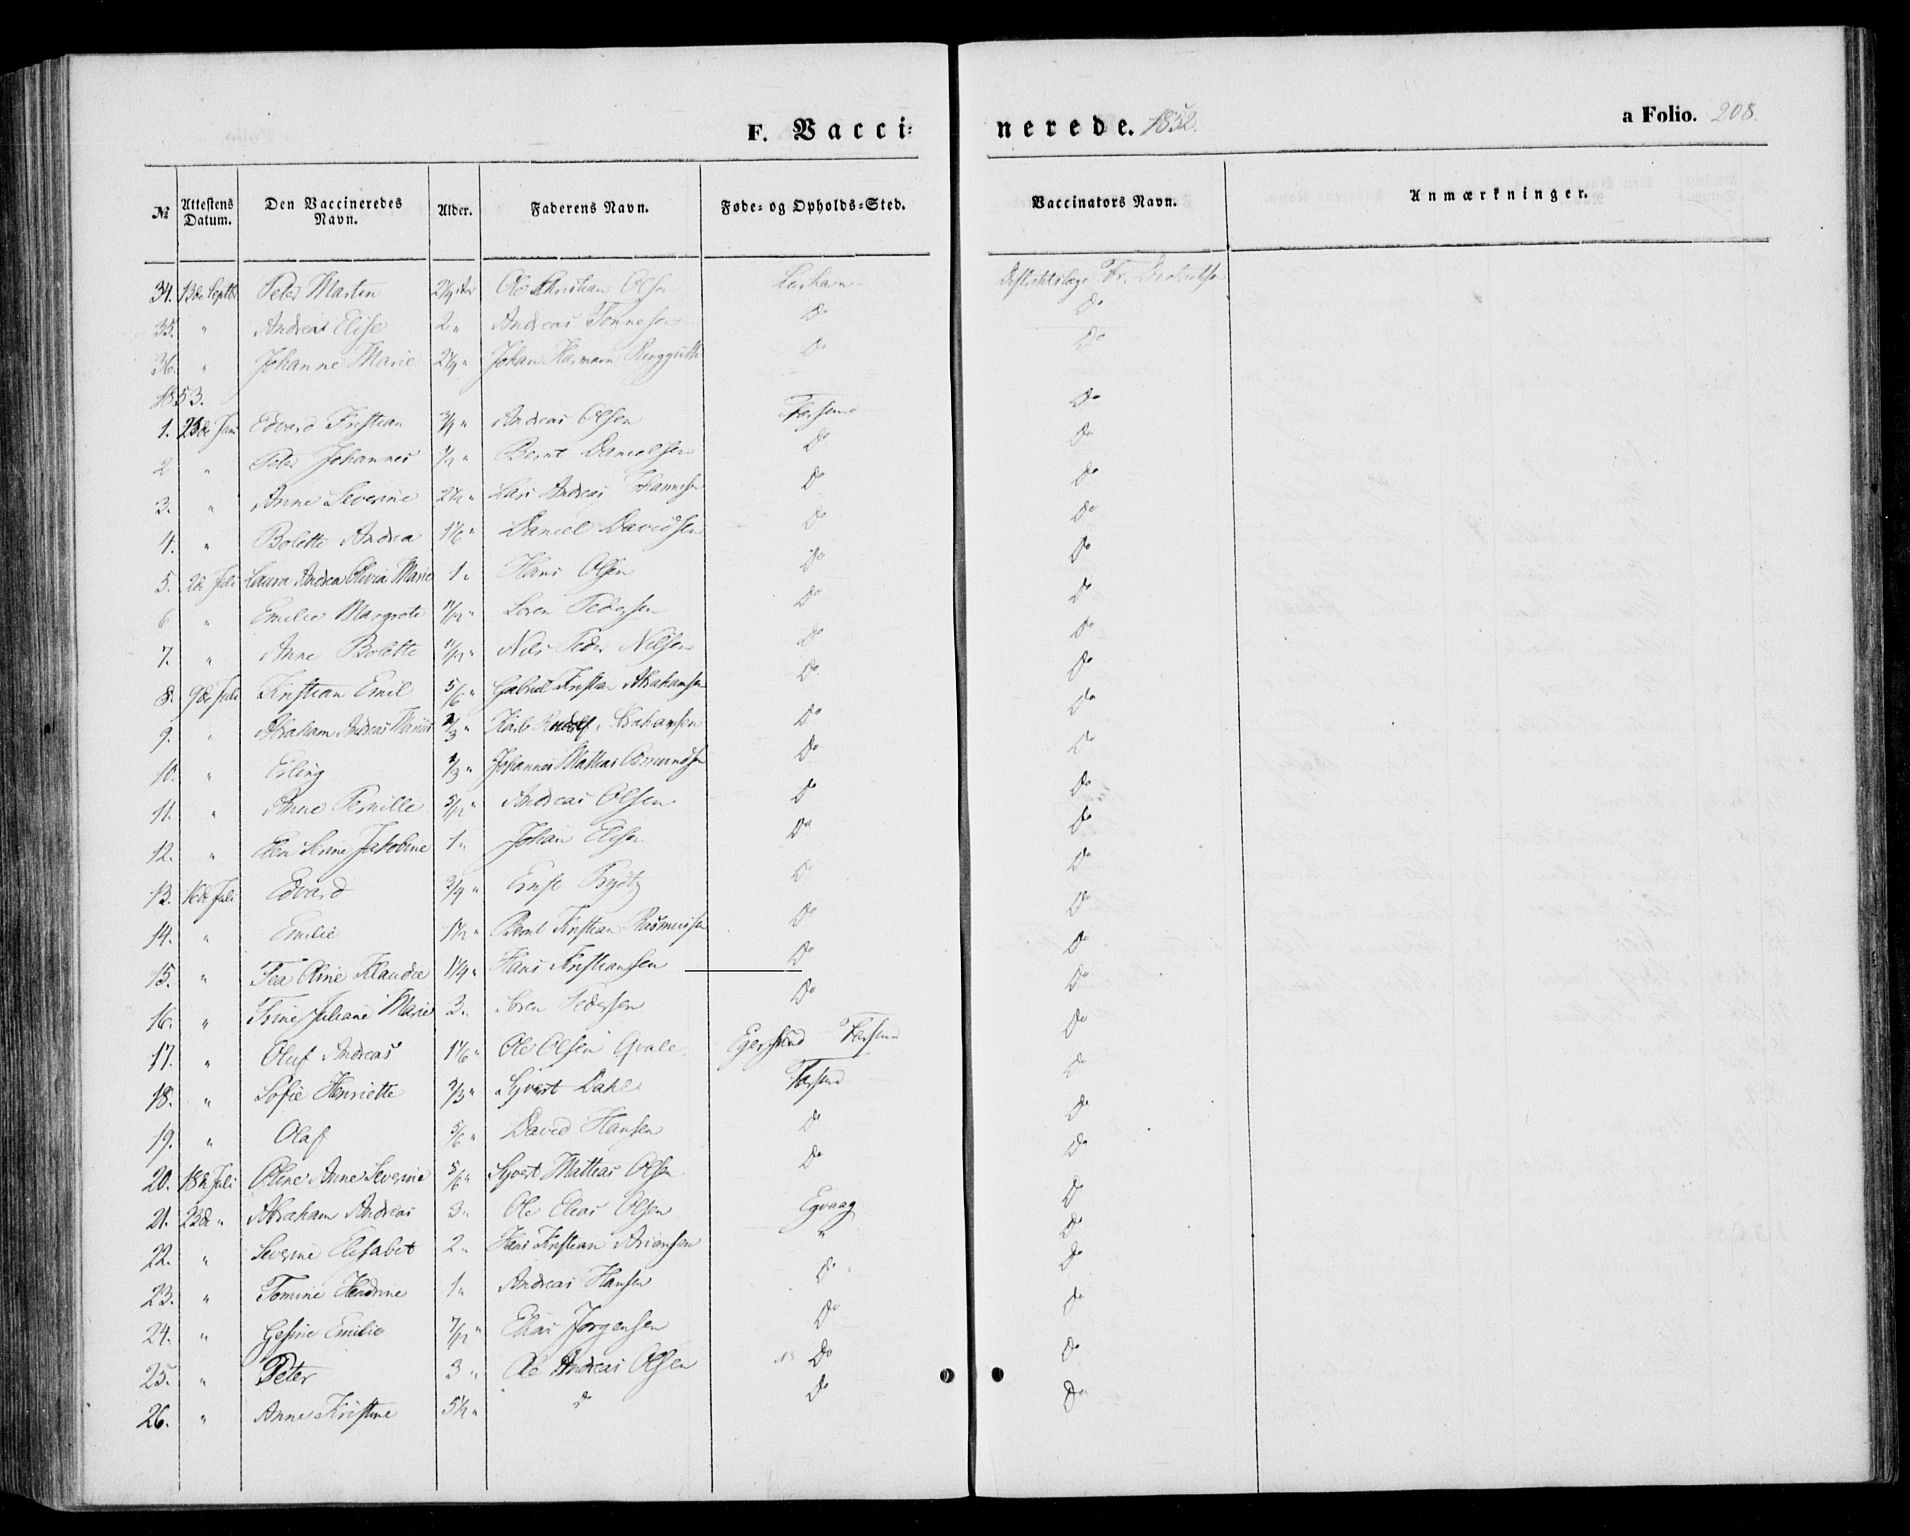 F. Vaccinerede. 1852.
a Folio. 208.
№ Attestens Datum. Den Vaccineredes Navn. Alder. Faderens Navn. Føde- og Opholds-Sted. Vaccinators Navn. Anmærkninger.
34. 13de Septbr Peder Martin Ole Christian Olsen
35. " Andrea Elise 2 " Andreas Tønnesen Do Do
36. " Johanne Marie 2¼ " Johan Herman Do Do
1853.
1. Jan Edvard Kristian ¾ " Andreas Olsen Farsund Do
2 " Peder Johannes ½ " Bernt Danielsen Do Do
3. " Anne Severine Lars Andreas Do Do
4. " Bolette Andrea 1⅙ " Daniel Davidsen Do Do
5. 2de Juli Laura Andrea Olivia Marie 1 " Hans Olsen Do Do
6 " Emilie Margrete 11/12 " Søren Pedersen Do Do
7. " Anne Bolette 11/12 " Nils Peder Nilsen Do Do
8. 9de Juli Kristian Emil 5/6 " Gabriel Kristian Abrahamsen Do Do
9. " Abraham Andreas Marius 2/3 " Karl Rudolf Abrahamsen Do Do
10. " Erling 2/3 " Johannes Mathias Osmundsen Do Do
11. " Anne Pernille 5/12 " Andreas Olsen Do Do
12. " Elen Anne Jakobine 1 " Johan Do Do
13. 16de Juli Edvard ¾ " Ernst Do Do
14. " Emilie 1½ " Bernt Kristian Rasmussen Do Do
15. " Tea Oline Klaudia 1¼ " Hans Kristiansen Do Do
16. " Trine Juliane Marie 3 " Søren Pedersen Do Do
17. " Oluf Andreas 1⅙ " Ole Olsen Qvale Egersund Farsund Do
18. " Sofie Henriette 2/3 " Syvert Dahl Farsund Do
19. " Olaf 5/6 " David Hansen Do Do
20. 18de Juli Oline Anne Severine 5/6 " Syvert Mathias Olsen Do Do
21. 23de " Abraham Andreas 3 " Ole Elias Olsen Egvaag Do
22. " Severine Elisabet 2 " Hans Kristian " Do
23. " Tomine Hendrine 1 " Andreas Hansen Do Do
24. " Gesine Emilie 7/12 " Elias Jørgensen Do Do
25. " Peter 3 " Ole Andreas Olsen Do Do
26. " Anne Kristine 5½ " do Do Do